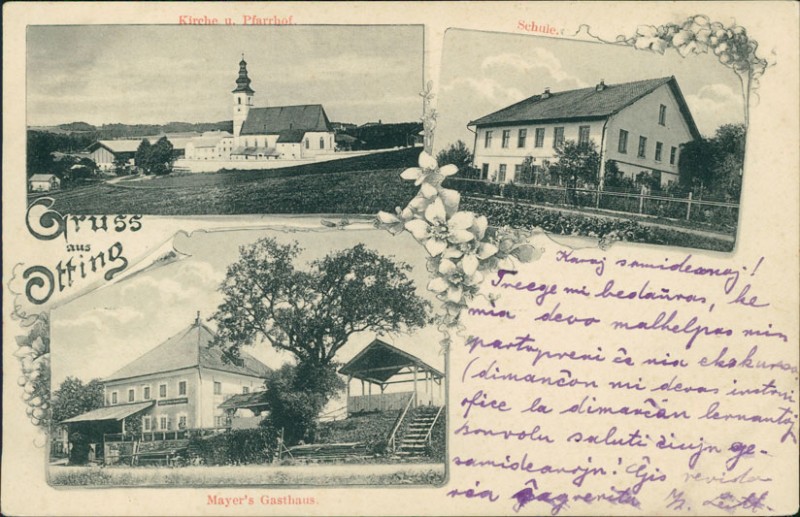 Kirche u. Pfarrhof.
Schule.
Gruss
aus
Otting
Mayer's Gasthaus.
Karaj samideanoj!
Treege mi bedaŭras, ke
mia devo malhelpas min
partopreni ĉe nia ekskurso
(dimanĉon mi devas instrui
ofice la dimanĉan lernantoj
bonvolu saluti ĉiujn ge-
samideanojn! Ĝis revido